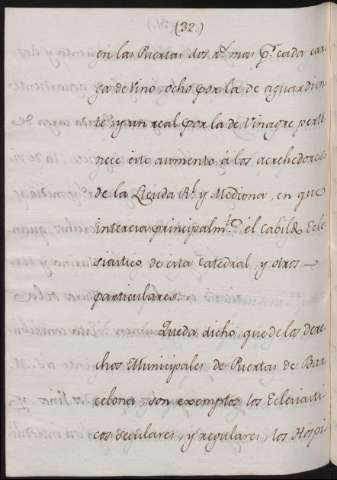 (32.)
en las Puertas dos r.s mas p.r cada car
ga de Vino, ocho por la de aguardien
te, y un real por la de Vinagre perte
nece este aumento á los acrehedores
de la Lleuda R.l y Mediona, en que
interesa principalm.te el Cabildo Ecle
siastico de esta Catedral, y otros
particulares.
Queda dicho, que de los dere
chos Municipales de Puertas de Bar
celona son exemptos los Eclesiasti
cos seculares, y regulares, los Hospi